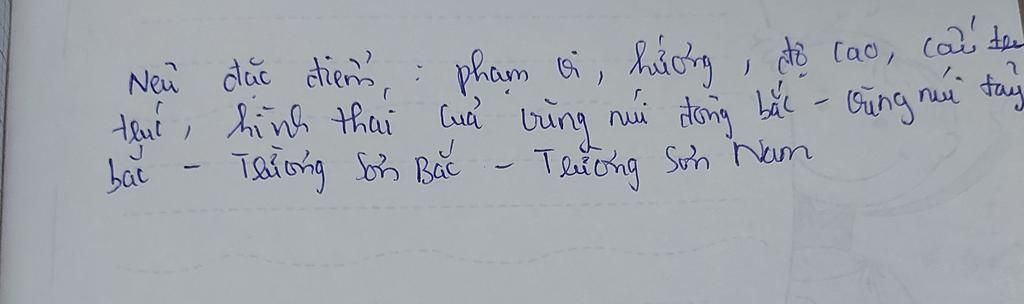 Nêu đặc điểm : phạm vi, hướng, độ cao, cấu
trúc, hình thái của vùng núi đông bắc - vùng núi tây
bắc - Trường Sơn Bắc - Trường Sơn Nam